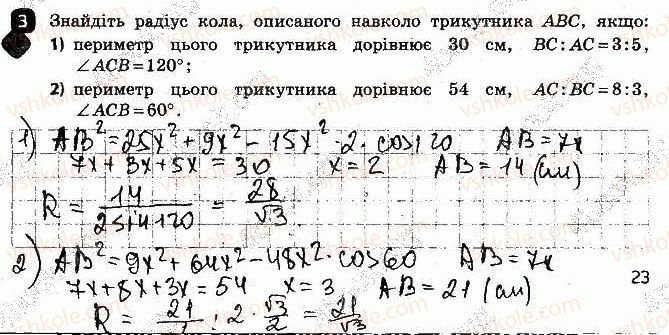 3 Знайдіть радіус кола, описаного навколо трикутника ABC, якщо:
1) периметр цього трикутника дорівнює 30 см, BC:AC=3:5,
∠ACB=120°;
2) периметр цього трикутника дорівнює 54 см, AC:BC=8:3,
∠ACB=60°.
1) AB²=25x²+9x²-15x²·2·cos120 AB=7x
7x+3x+5x=30 x=2 AB=14(см)
R = 14/(2sin120) = 28/√3
2) AB²=9x²+64x²-48x²·cos60 AB=7x
23
7x+8x+3x=54 x=3 AB=21(см)
R = 21/1 : 2·√3/2 = 21/√3